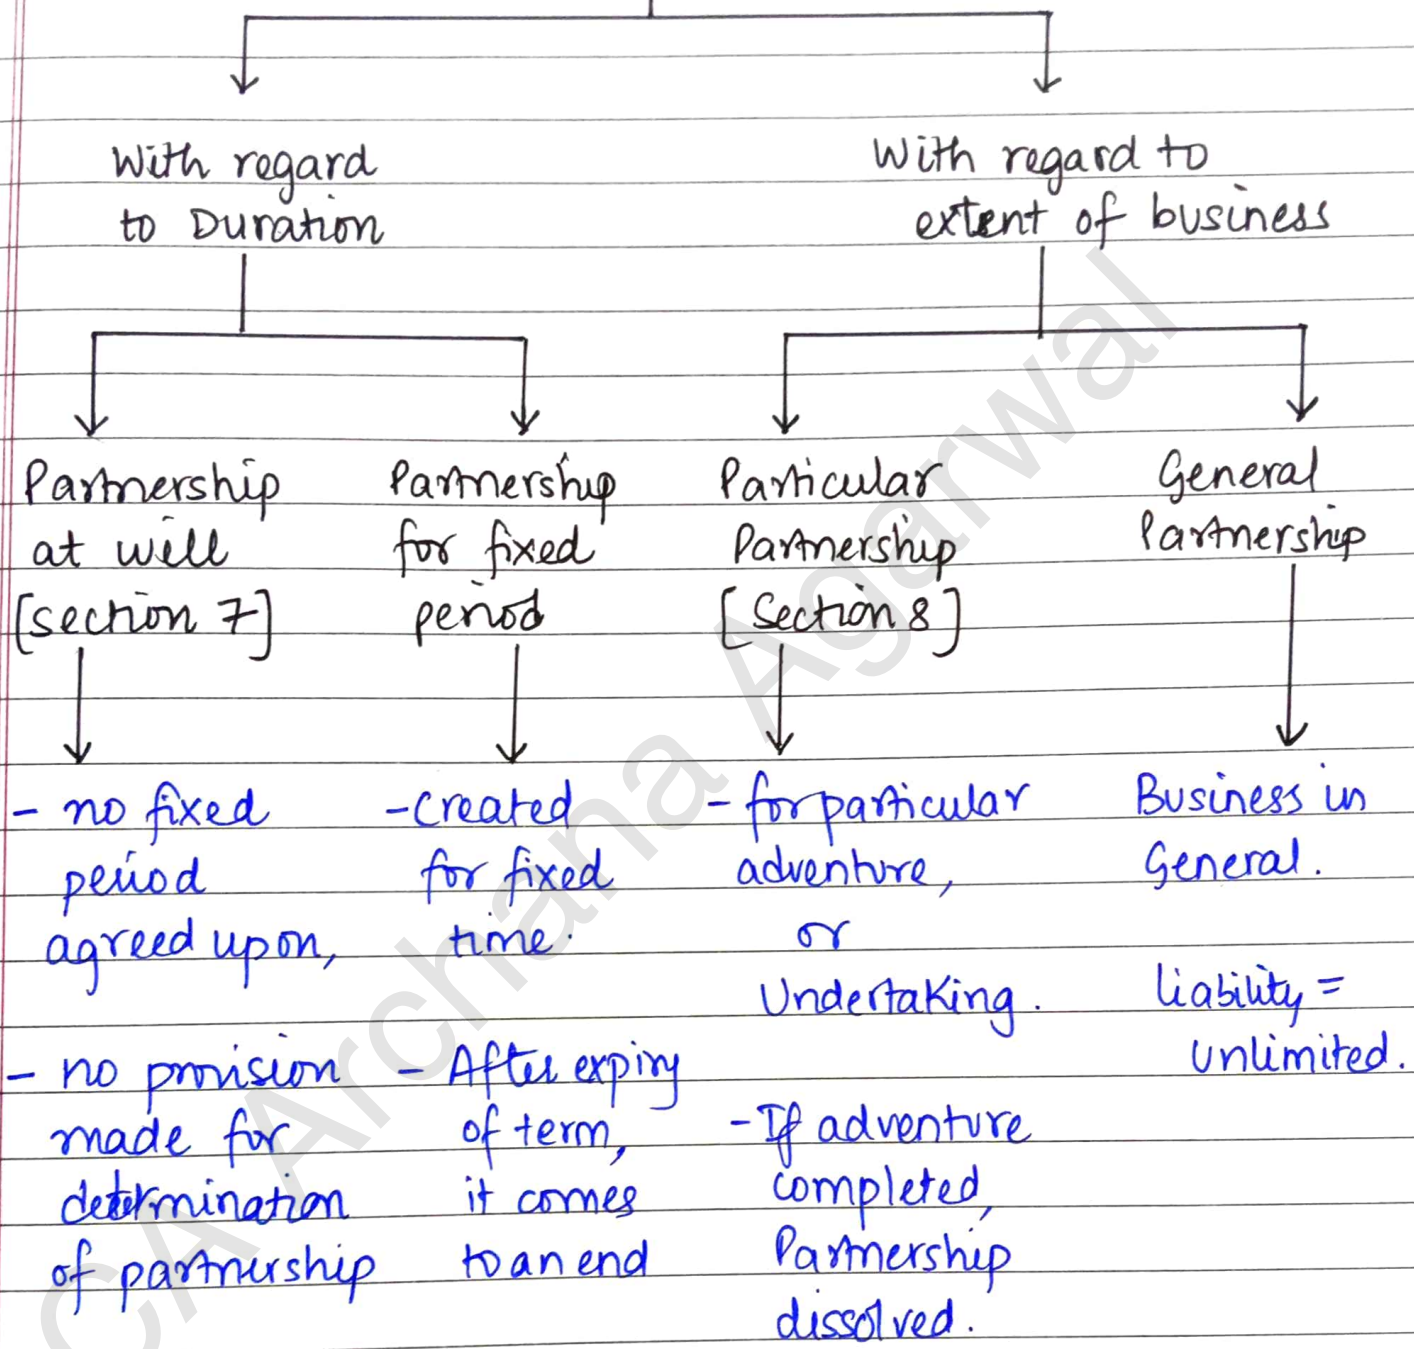 With regard
to Duration
With regard to
extent of business
Partnership
at will
[section 7]
Partnership
for fixed
period
Particular
Partnership
[Section 8]
General
Partnership
- no fixed
period
agreed upon,
- no provision
made for
determination
of partnership
- Created
for fixed
time.
- After expiry
of term,
it comes
to an end
- for particular
adventure,
or
Undertaking.
- If adventure
completed,
Partnership
dissolved.
Business in
General.
liability =
unlimited.
CA Archana Agarwal